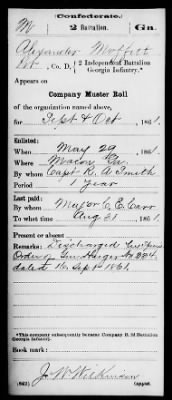 (Confederate.)
M 2 Battalion. Ga.
Alexander Moffett
Pvt, Co. D, 2 Independent Battalion
Georgia Infantry.*
Appears on
Company Muster Roll
of the organization named above,
for Sept & Oct, 1861.
Enlisted:
When May 29, 1861.
Where Macon Ga.
By whom Capt R. A. Smith
Period 1 Year
Last paid:
By whom Major C. E. Carr
To what time Aug 31, 1861.
Present or absent
Remarks: Discharged
Order of No 224
dated 16 Sept 1861.
*This company subsequently became Company D, 2d Battalion
Georgia Infantry.
Book mark:
J. W. Wilkinson
(642) Copyist.